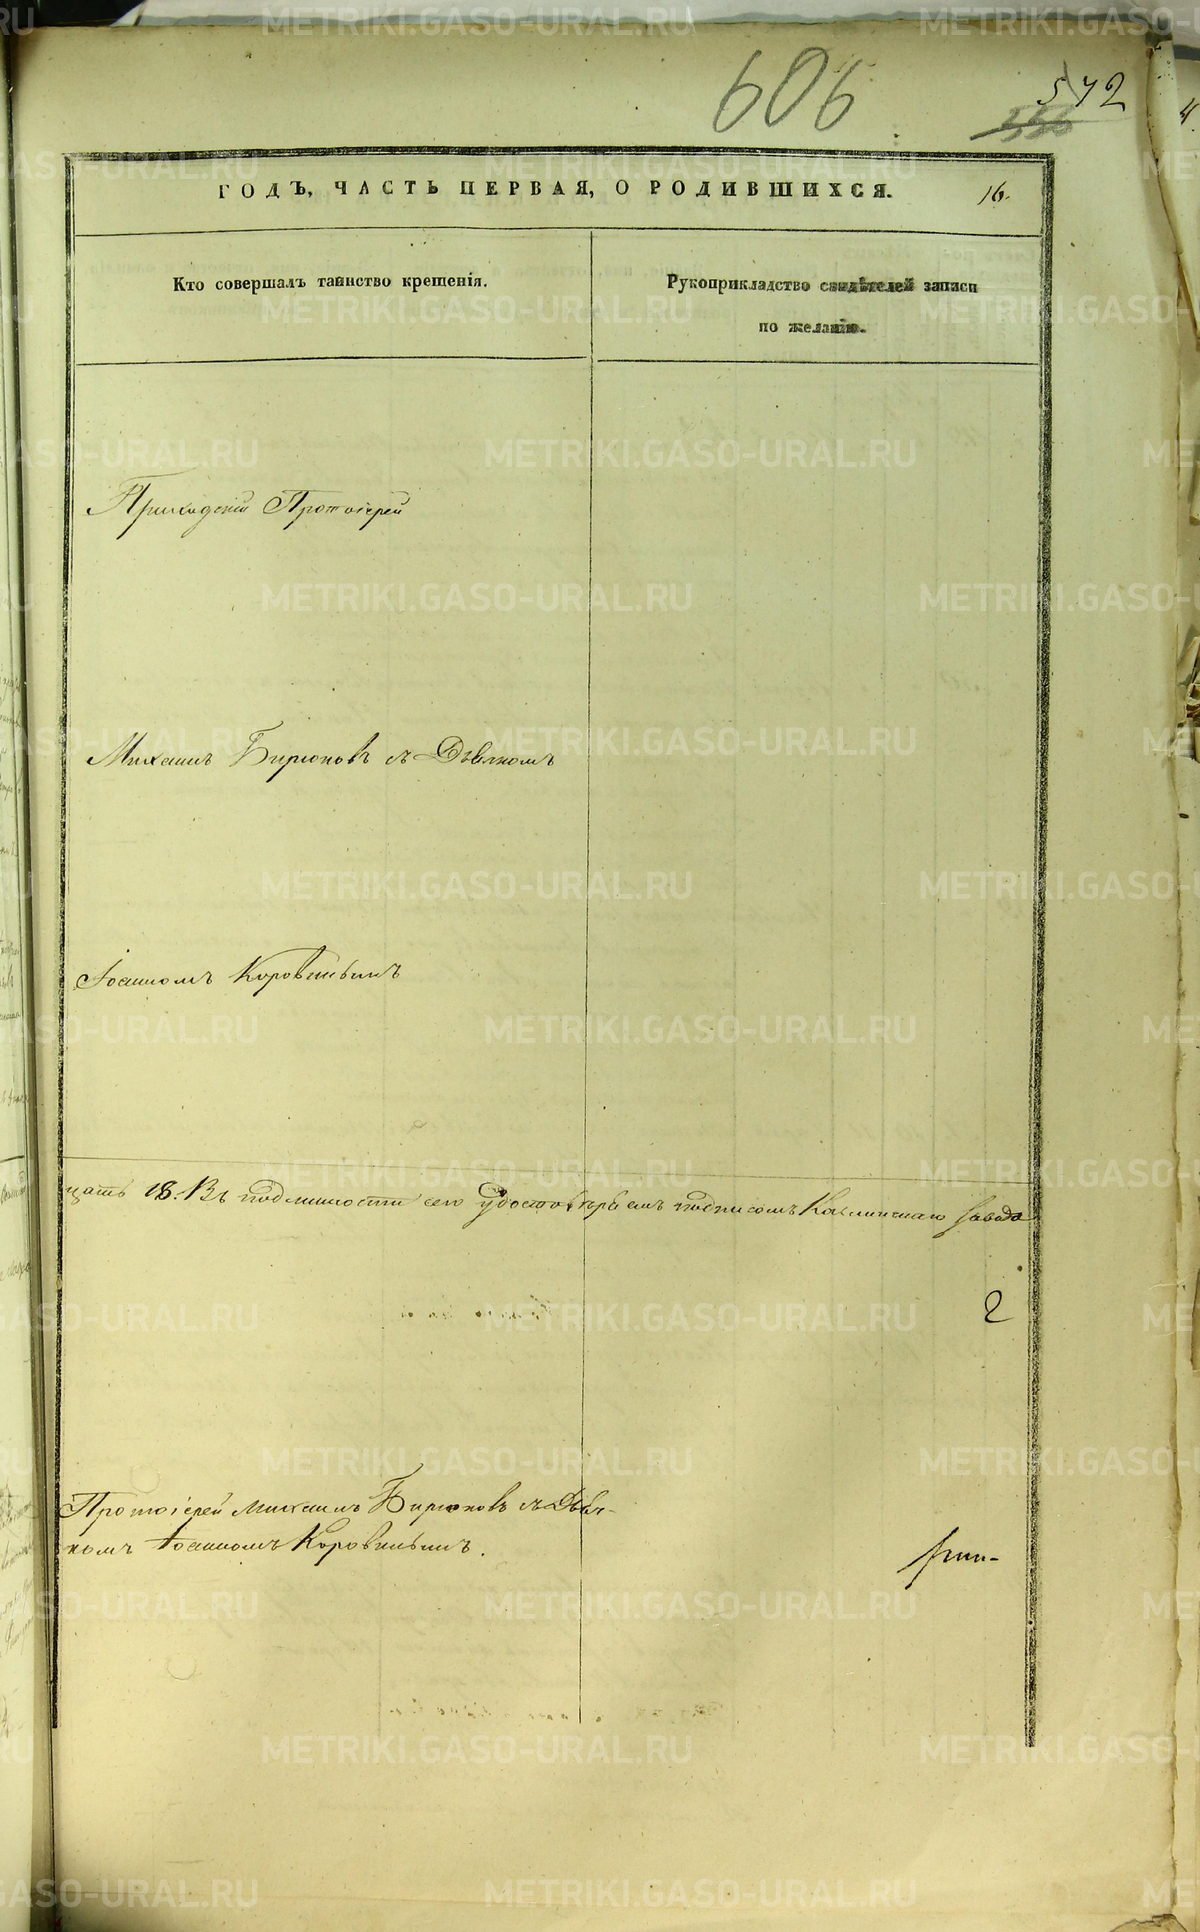 606
572
ГОДЪ, ЧАСТЬ ПЕРВАЯ, О РОДИВШИХСЯ.
16.
Кто совершалъ таинство крещенія.
Рукоприкладство свидѣтелей записи
по желанію.
Приходскій Протоіерей
Михаилъ Бирюковъ съ Дьякомъ
Іоанномъ Коровинымъ
цать 18. Въ подлинности сего удостовѣряемъ подписомъ Каслинскаго завода
2
Протоіерей Михаилъ Бирюковъ съ Дья-
комъ Іоанномъ Коровинымъ.
METRIKI.GASO-URAL.RU